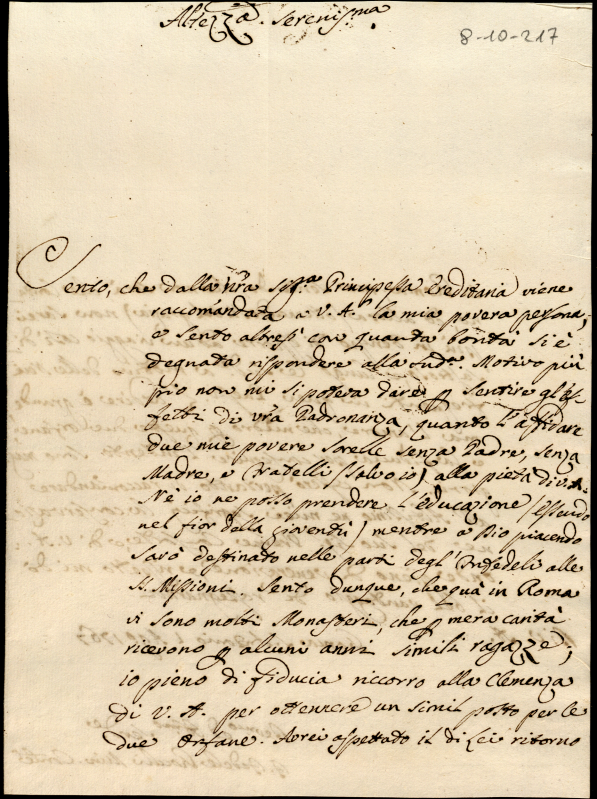 Altezza Serenis.ma
8-10-217
Sento, che dalla vra Sig.ra Principessa Ereditaria viene
raccomandata a V. A. la mia povera persona,
e sento altresì con quanta bontà si è
degnata rispondere alla sud.a Motivo più
pio non mi si poteva dare p sentire gl'ef-
fetti di vra Padronanza, quanto l'affidare
due mie povere sorelle senza Padre, senza
Madre, e Fratelli (salvo io) alla pietà di V. A.
Nè io ne posso prendere l'educazione (essendo
nel fior della gioventù) mentre a Dio piacendo
sarò destinato nelle parti degl'Infedeli alle
SS. Missioni. Sento dunque, che quà in Roma
vi sono molti Monasterj, che p mera carità
ricevono p alcuni anni simili ragazze;
io pieno di fiducia riccorro alla Clemenza
di V. A. per ottennere un simil posto per le
due Orfane. Avrei aspettato il di Lei ritorno